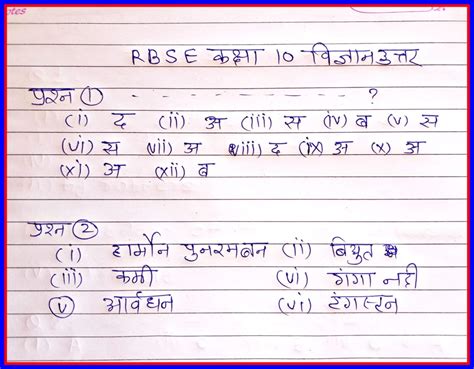 otes
RBSE कक्षा 10 विज्ञान उत्तर
प्रश्न (1) - - - - - - - - - - ?
(i) द (ii) अ (iii) स (iv) ब (v) स
(vi) स (vii) अ (viii) द (ix) अ (x) अ
(xi) अ (xii) ब
प्रश्न (2)
(i) हार्मोन (ii) विधुत
(iii) कमी (vi) गंगा नदी
(v) आर्वधन (vi) टंगस्टन